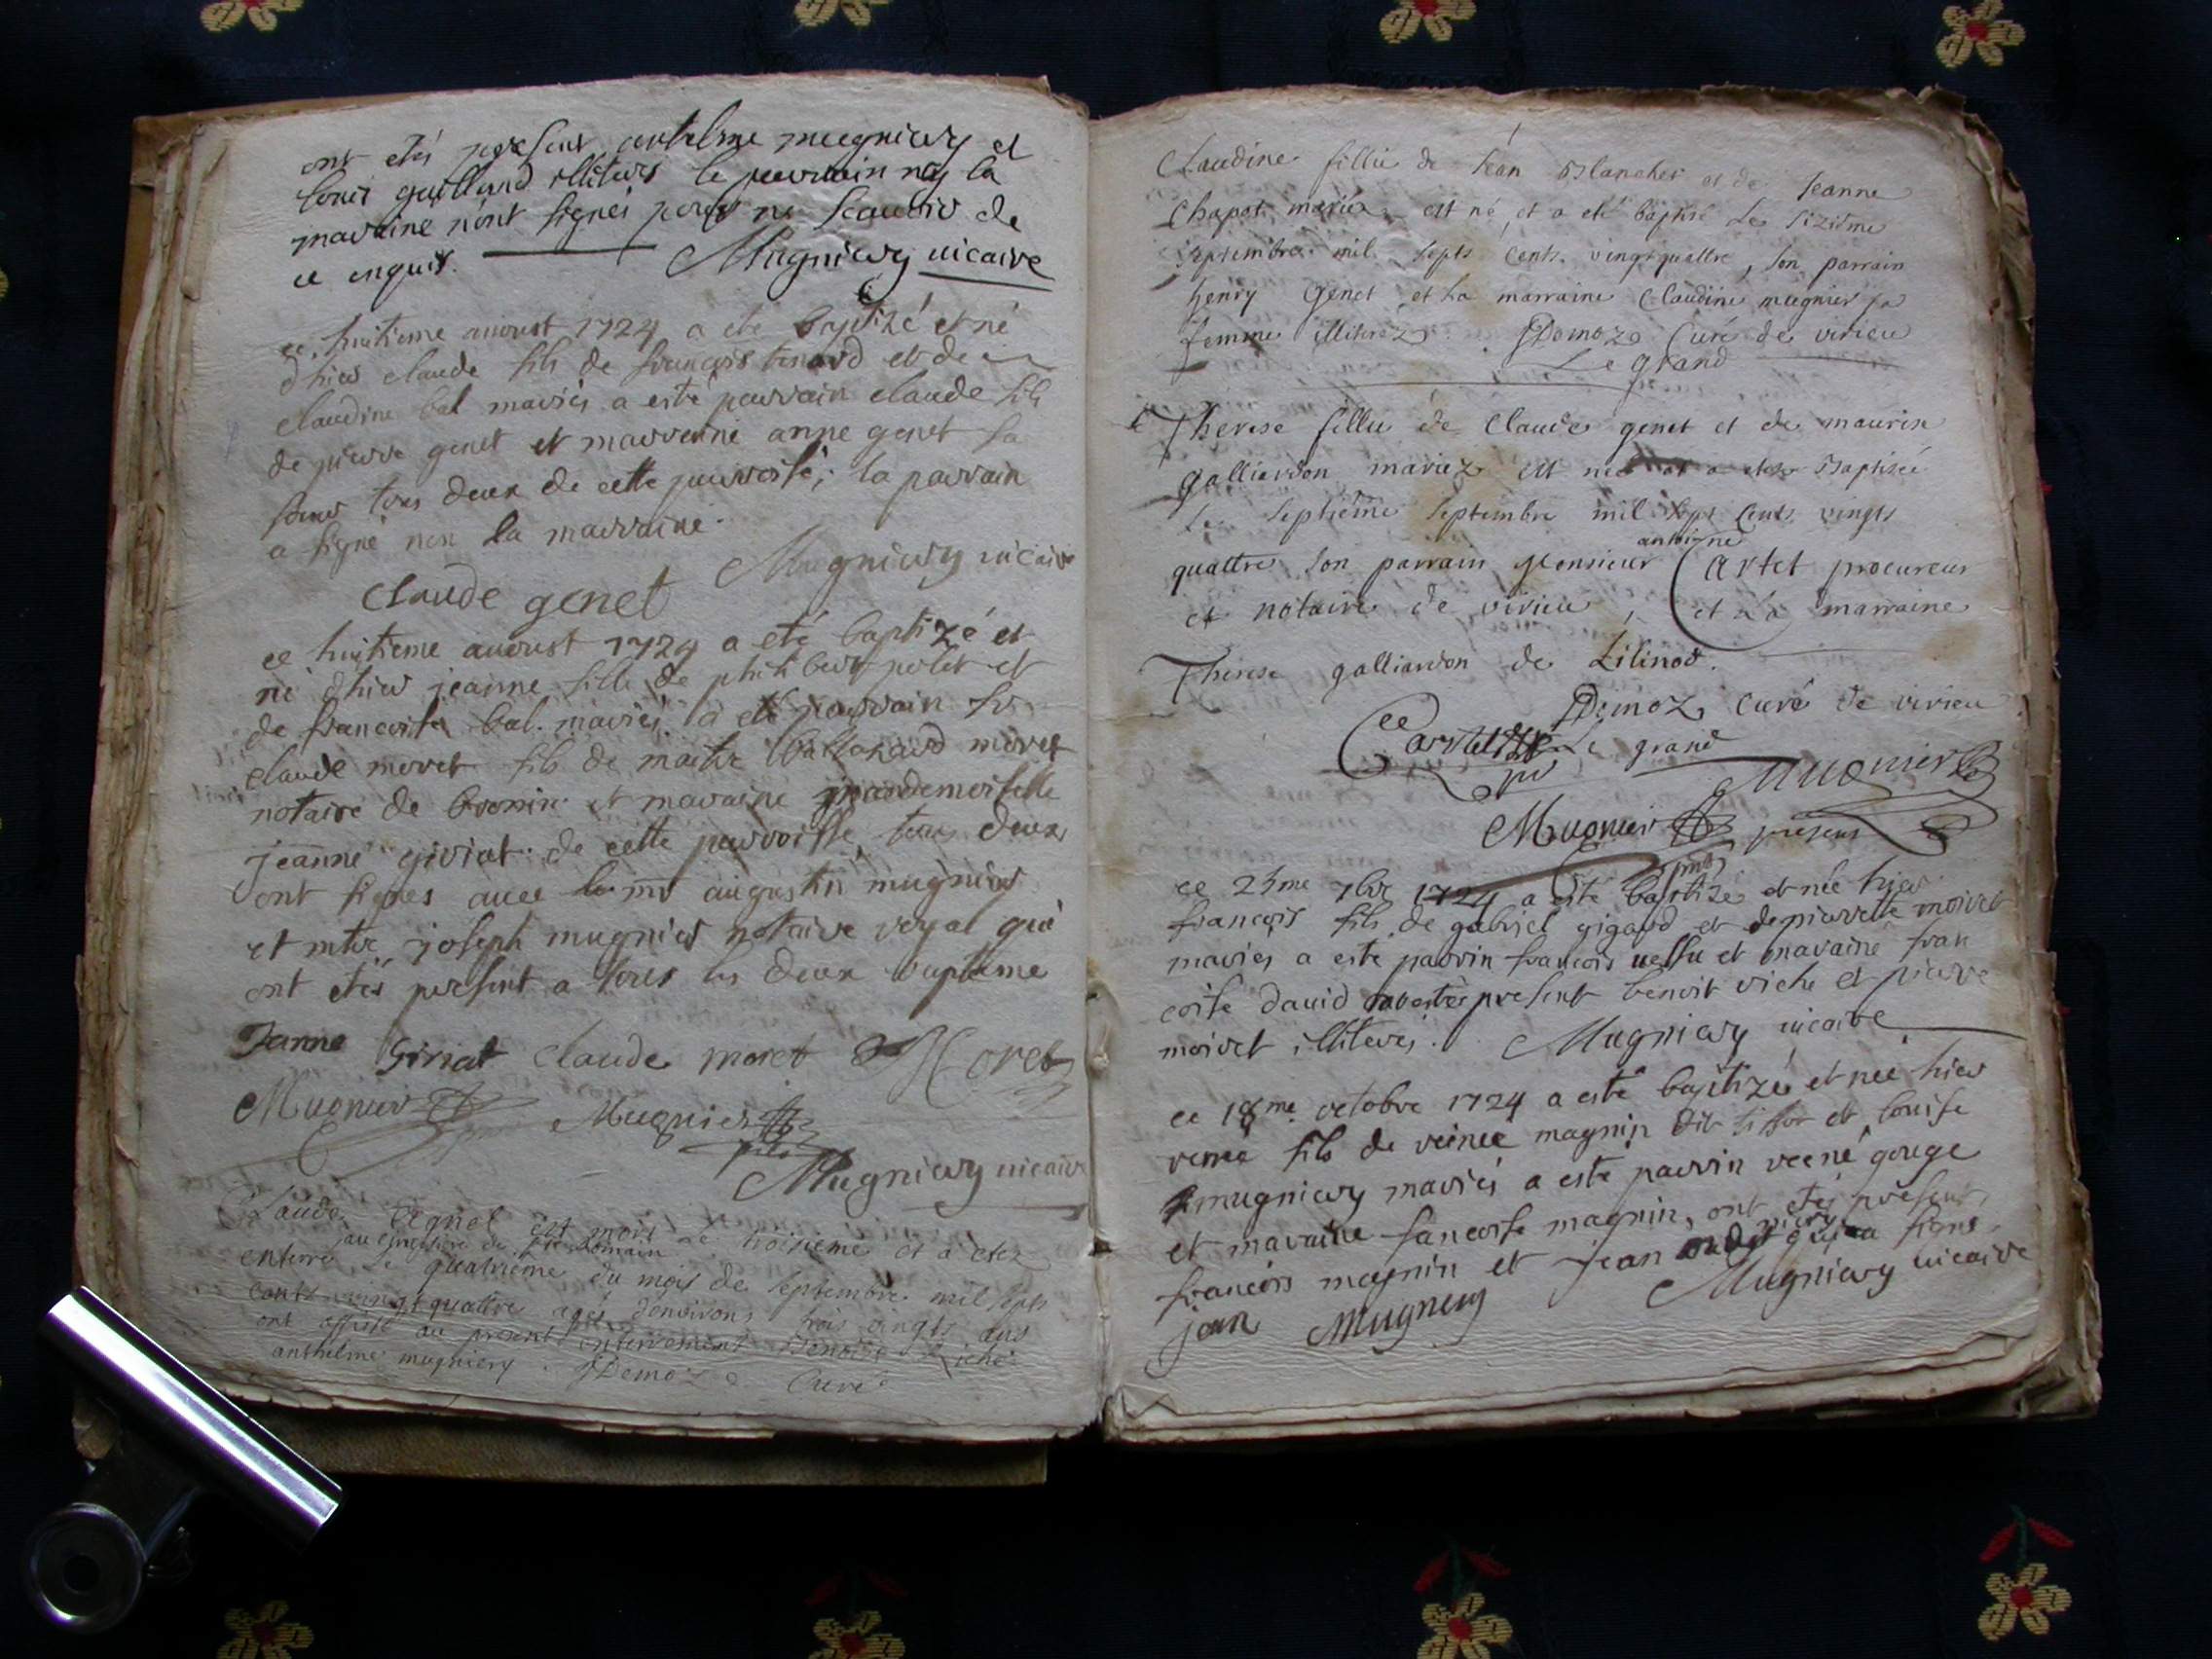 ont etés present antelme mugniery et
louis guilland illiterés le parrain ny la
marraine n'ont signés pour ne scauoir de
ce enquis. Mugniery uicaire
ce huitieme auoust 1724 a eté baptizé et né
d'hier claude fils de françois et de
claudine bal mariés a esté parrain claude fils
de pierre genet et marreine anne genet sa
soeur tous deux de cette parroisse; la parrain
a signé non la marraine.
Mugniery uicaire
Claude genet
ce huitieme auoust 1724 a eté baptizé et
né d'hier jeanne fille de philibert polet et
de francoise bal mariés a eté parrain sr
claude moret fils de maitre moret
notaire de et maraine mademoiselle
jeanne giriat de cette parroisse, tous deux
ont signes auec le mr augustin mugnier
et mtre joseph mugnier notaire royal qui
ont etés present a tous les deux bapteme
Janne Giriat Claude moret Moret
Mugnier Mugnier fils
Mugniery uicaire
Claude est mort le troisieme et a etez
au cimetiere de St Romain
enterré le quatrieme du mois de septembre mil septs
cents vingt quattre agé d'environs trois vingts ans
ont assisté au present enterrement Benoist Riche
anthelme mugniery. Demoz Curé
Claudine fillie de Jean Blanchet et de Jeanne
Chapot mariez est né, et a eté baptisé Le sizieme
septembre mil septs Cents vingt quattre, son parrain
henry Genet et La marraine Claudine mugnier sa
femme illiterez. Demoz Curé de virieu
Le grand
Therese fillie de Claude genet et de maurise
galliardon mariez est née et a etez Baptisée
Le septieme septembre mil sept Cents vingts
antoine
quattre son parrain Monsieur Cartet procureur
et notaire de virieu, et La marraine
Therese galliardon de Lilinod.
Demoz Curé de virieu
Cartet Le grand
Mugnier
Mugnier present
ce 23me 7bre 1724 a esté baptizé et née hier
françois fils de gabriel gigard et de pierrette moiret
mariés a esté parrin francois uessu et maraine fran
coise dauid present benoit riche et pierre
moiret illiterés. Mugniery uicaire
ce 18me octobre 1724 a esté baptizé et née hier
rené fils de reinée magnin dit et louise
mugniery mariés a esté parrin reené gouge
et maraine francoise magnin, ont etés present
francois magnin et jean mugniery qui a signé
jean Mugniery Mugniery uicaire